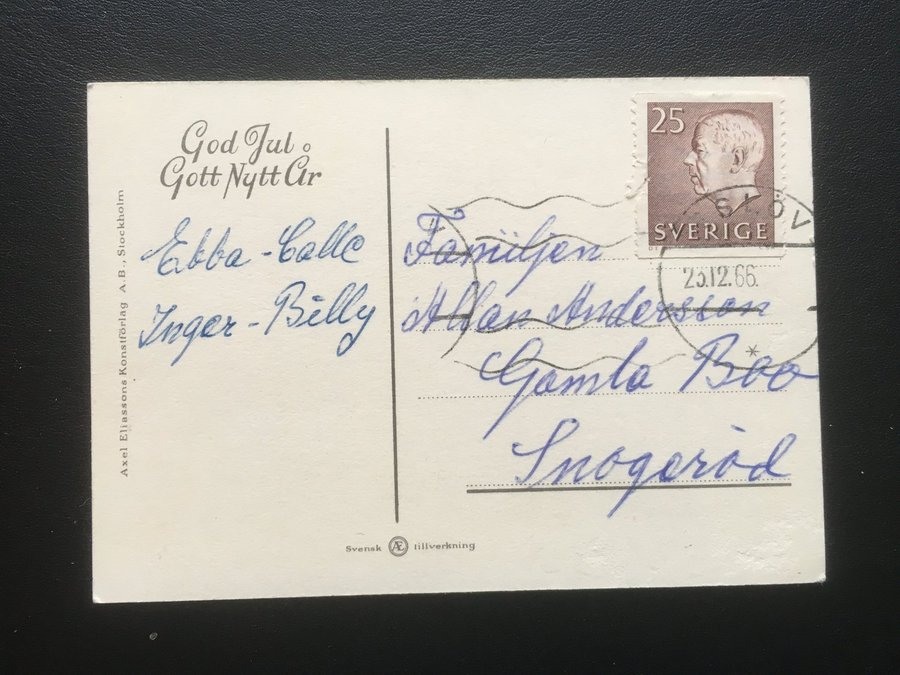 God Jul o
Gott Nytt År
Ebba - Calle
Inger - Billy
Axel Eliassons Konstförlag A.B., Stockholm
25
SVERIGE
SKÖV
23.12.66.
Familjen
Allan Andersson
Gamla Boo
Snogeröd
Svensk Æ tillverkning